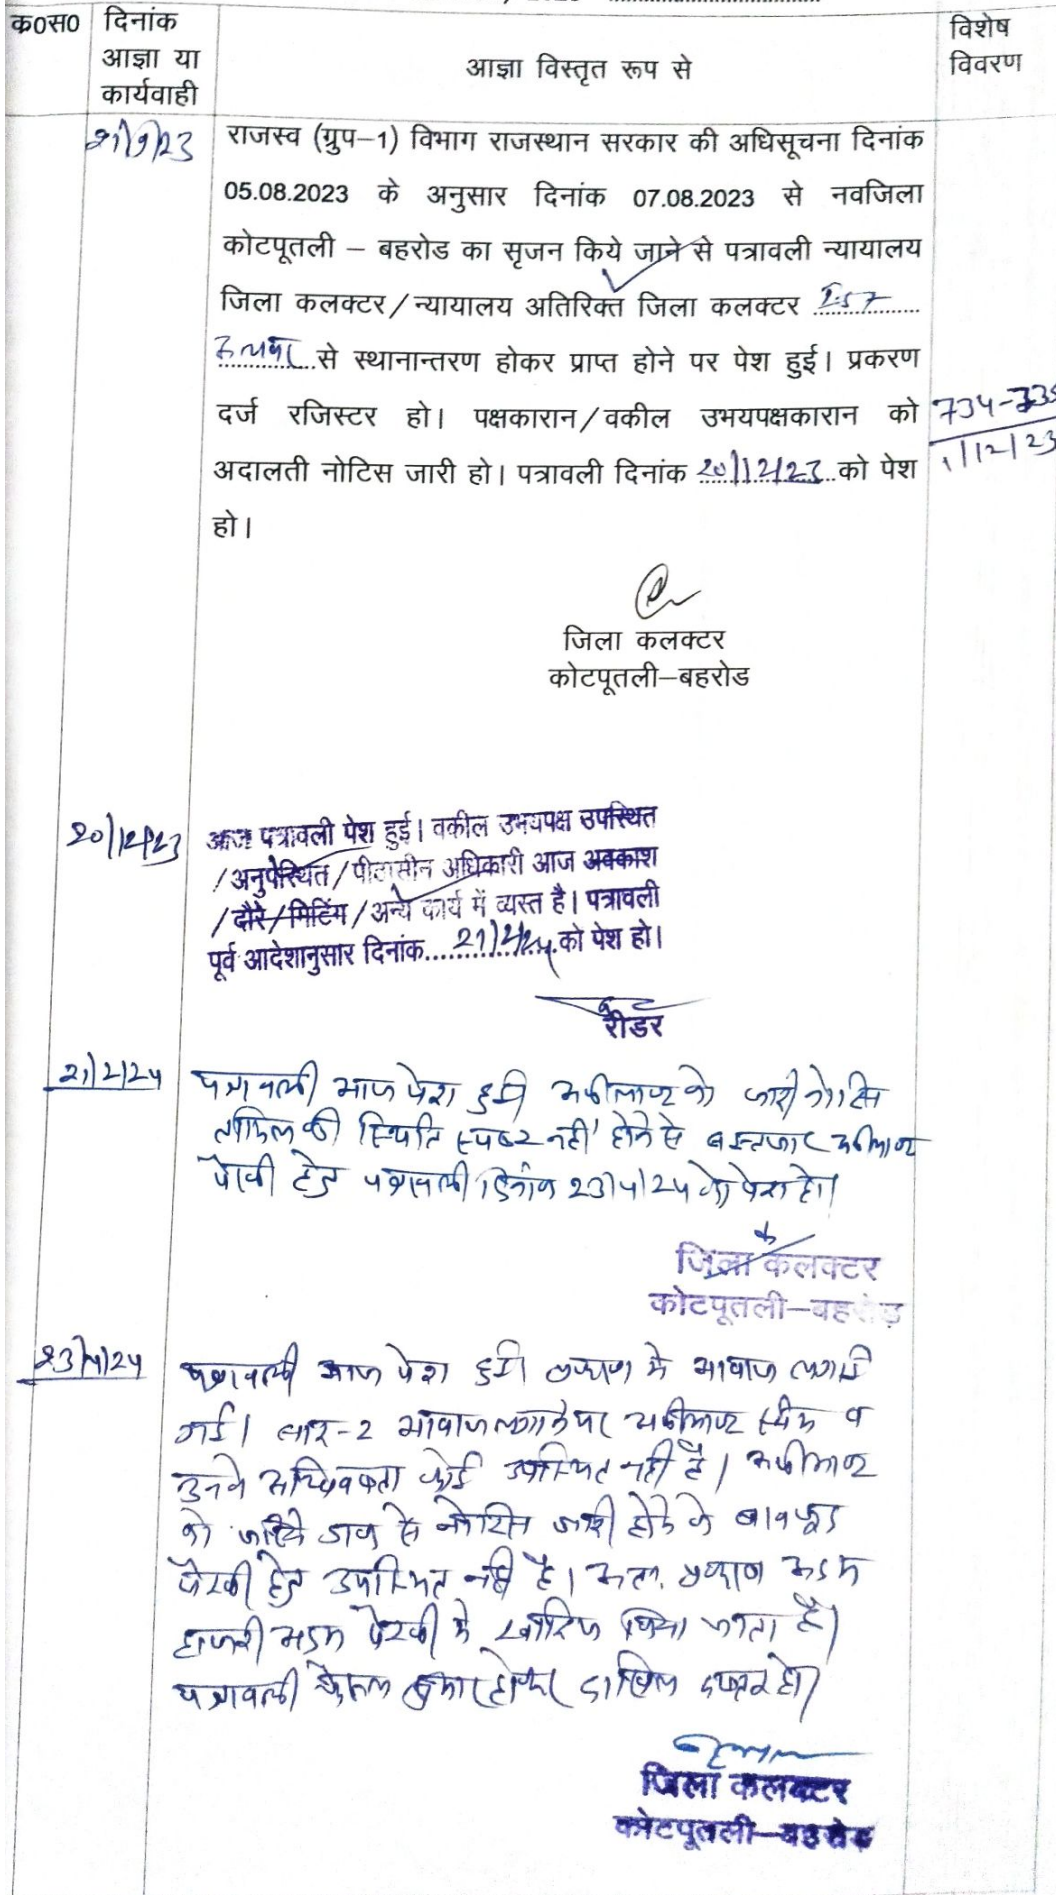 क०स० दिनांक आज्ञा या कार्यवाही आज्ञा विस्तृत रूप से विशेष विवरण
21/9/23 राजस्व (ग्रुप–1) विभाग राजस्थान सरकार की अधिसूचना दिनांक
05.08.2023 के अनुसार दिनांक 07.08.2023 से नवजिला
कोटपूतली – बहरोड का सृजन किये जाने से पत्रावली न्यायालय
जिला कलक्टर/न्यायालय अतिरिक्त जिला कलक्टर
से स्थानान्तरण होकर प्राप्त होने पर पेश हुई। प्रकरण
दर्ज रजिस्टर हो। पक्षकारान/वकील उभयपक्षकारान को
734-735
1/12/23
अदालती नोटिस जारी हो। पत्रावली दिनांक 20/12/23 को पेश
हो।
जिला कलक्टर
कोटपूतली–बहरोड
20/12/23 आज पत्रावली पेश हुई। वकील उभयपक्ष उपस्थित
/अनुपस्थित/पीठासीन अधिकारी आज अवकाश
/दौरे/मिटिंग/अन्य कार्य में व्यस्त है। पत्रावली
पूर्व आदेशानुसार दिनांक 21/2/24 को पेश हो।
रीडर
21/2/24 पत्रावली आज पेश हुई अपीलान्ट को जारी नोटिस
तामिल की स्थिति स्पष्ट नहीं होने से अपीलान्ट
पैरवी हेतु पत्रावली दिनांक 23/4/24 को पेश हो।
जिला कलक्टर
कोटपूतली–बहरोड़
23/4/24 पत्रावली आज पेश हुई प्रकरण में आवाज लगाई
गई। बार-2 आवाज लगाने पर अपीलान्ट स्वयं व
उनके अधिवक्ता कोई उपस्थित नहीं है। अपीलान्ट
को जरिये डाक से नोटिस जारी होने के बावजूद
पैरवी हेतु उपस्थित नहीं है। अतः प्रकरण अदम
हाजरी अदम पैरवी में खारिज किया जाता है।
पत्रावली फैसल शुमार होकर दाखिल दफ्तर हो।
जिला कलक्टर
कोटपूतली–बहरोड़